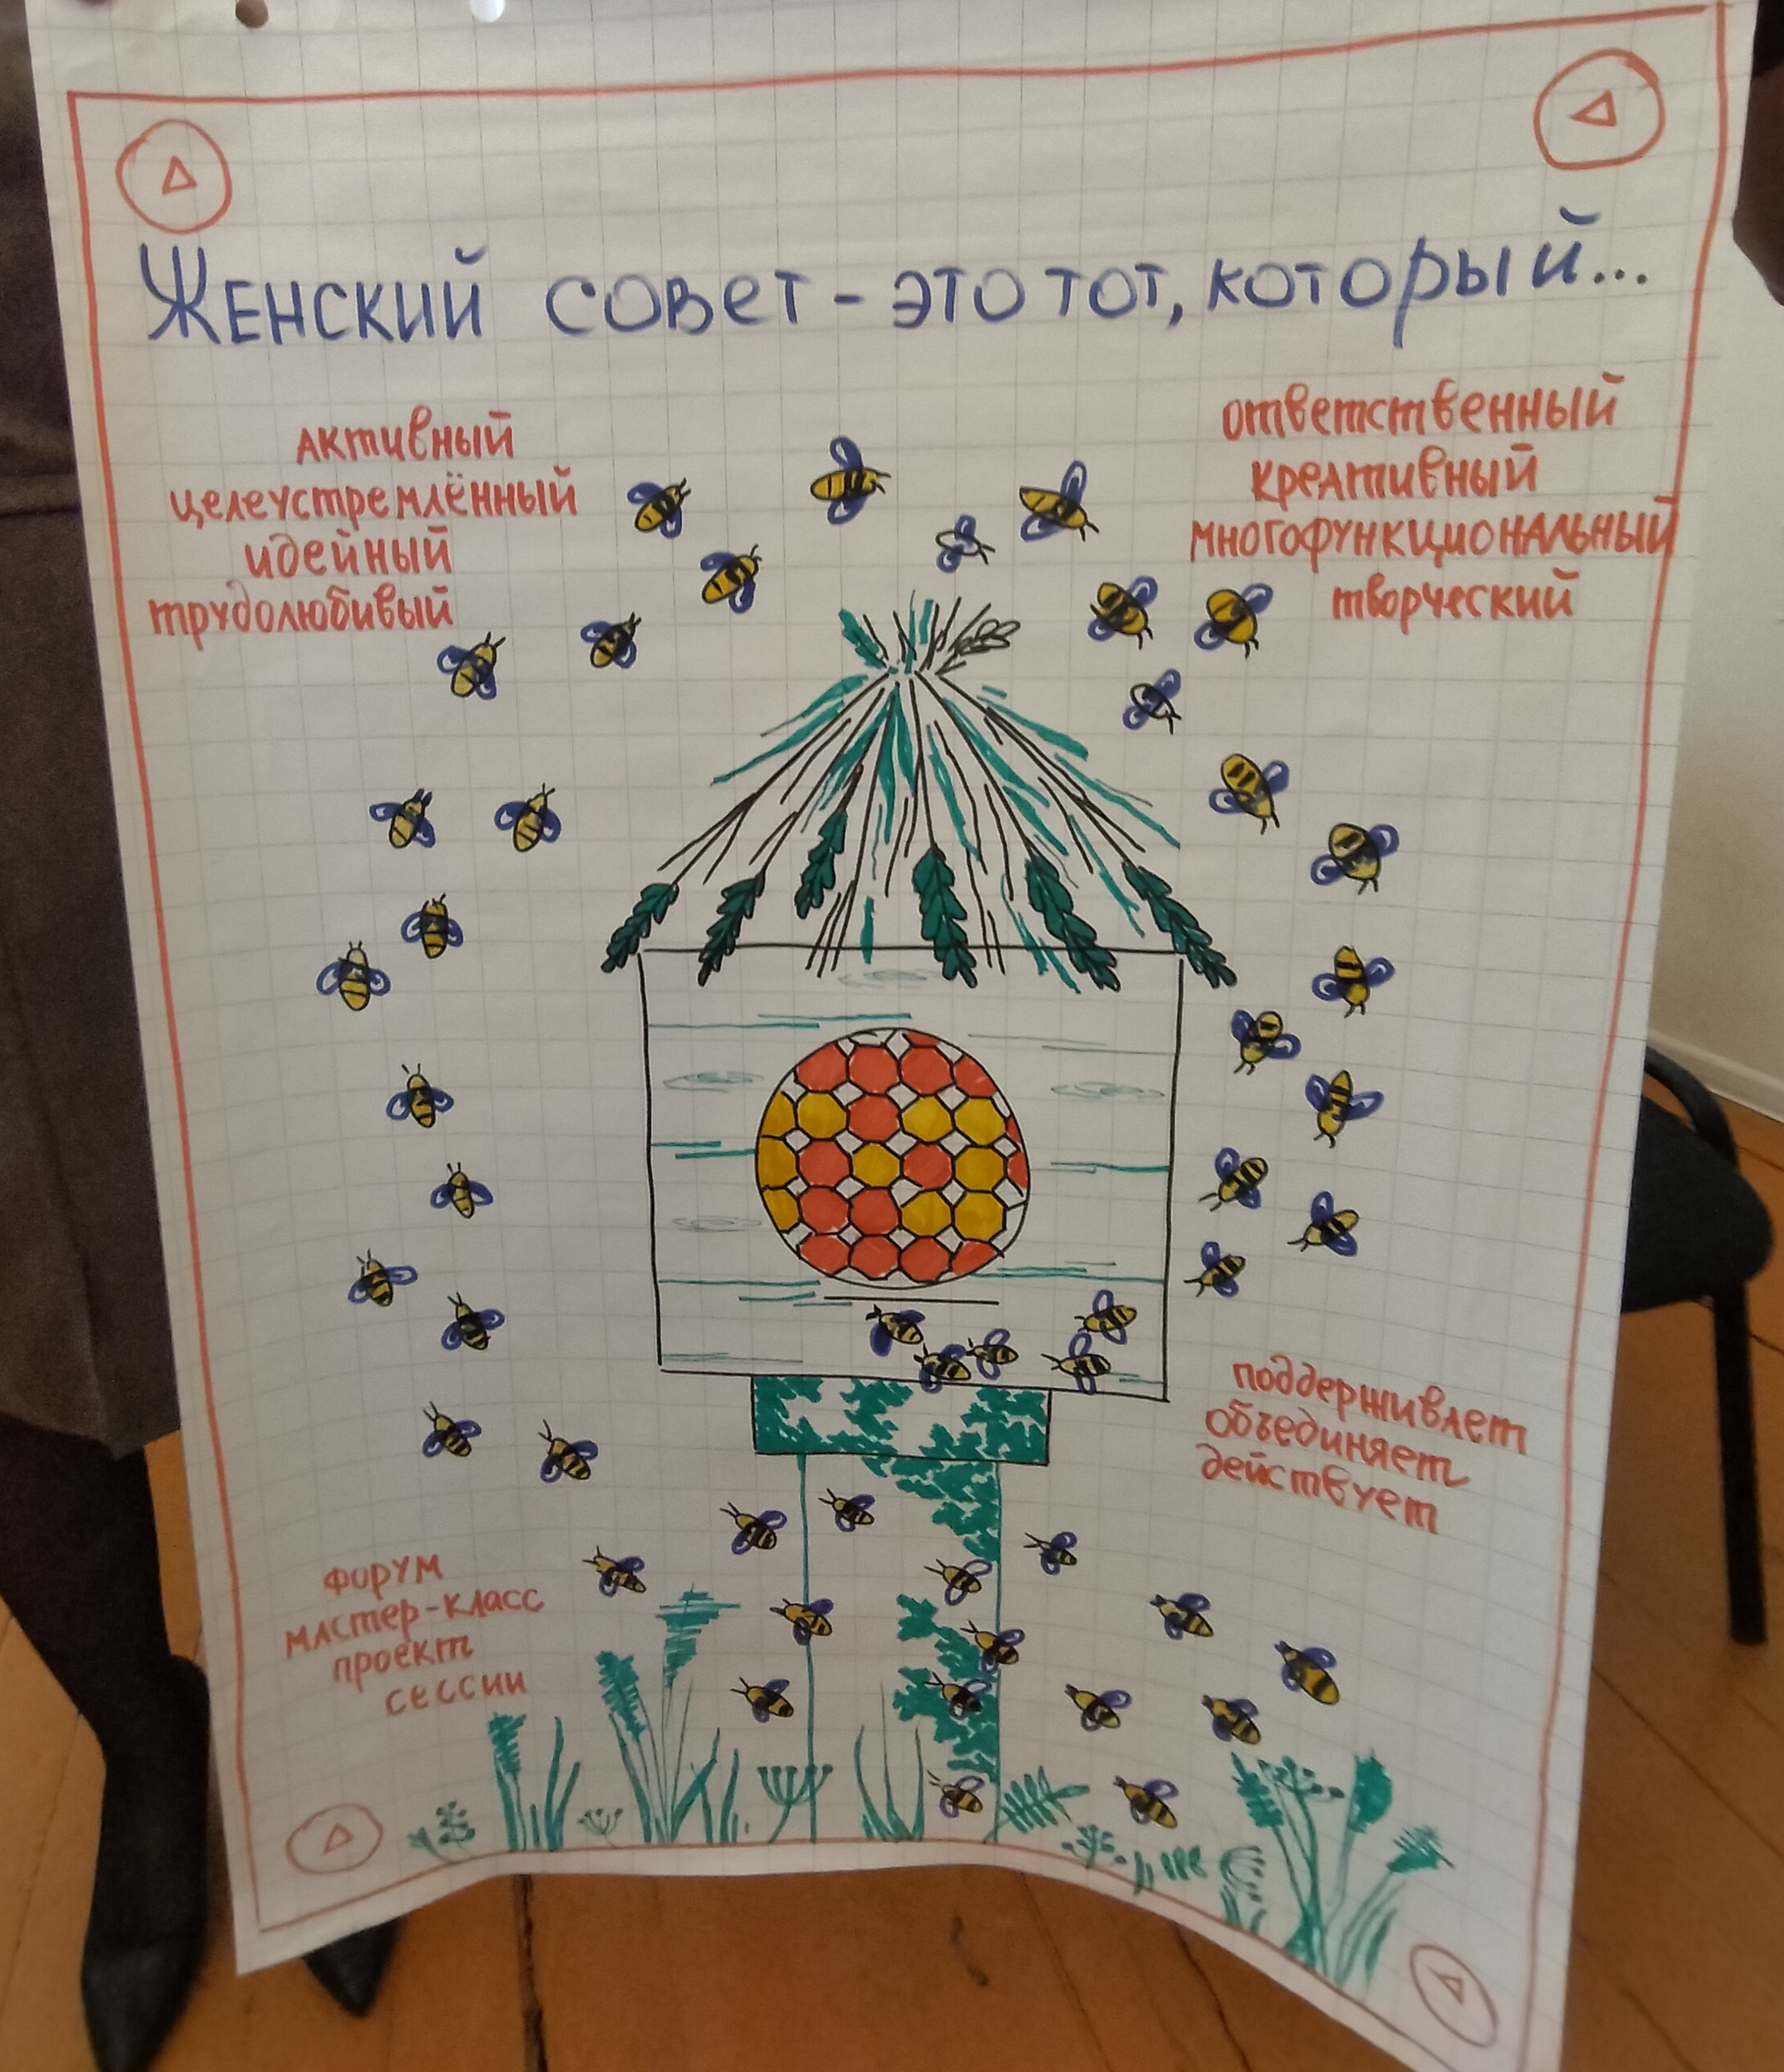 Женский совет - это тот, который...
активный
целеустремлённый
идейный
трудолюбивый
ответственный
креативный
многофункциональный
творческий
поддерживает
объединяет
действует
форум
мастер-класс
проект
сессии